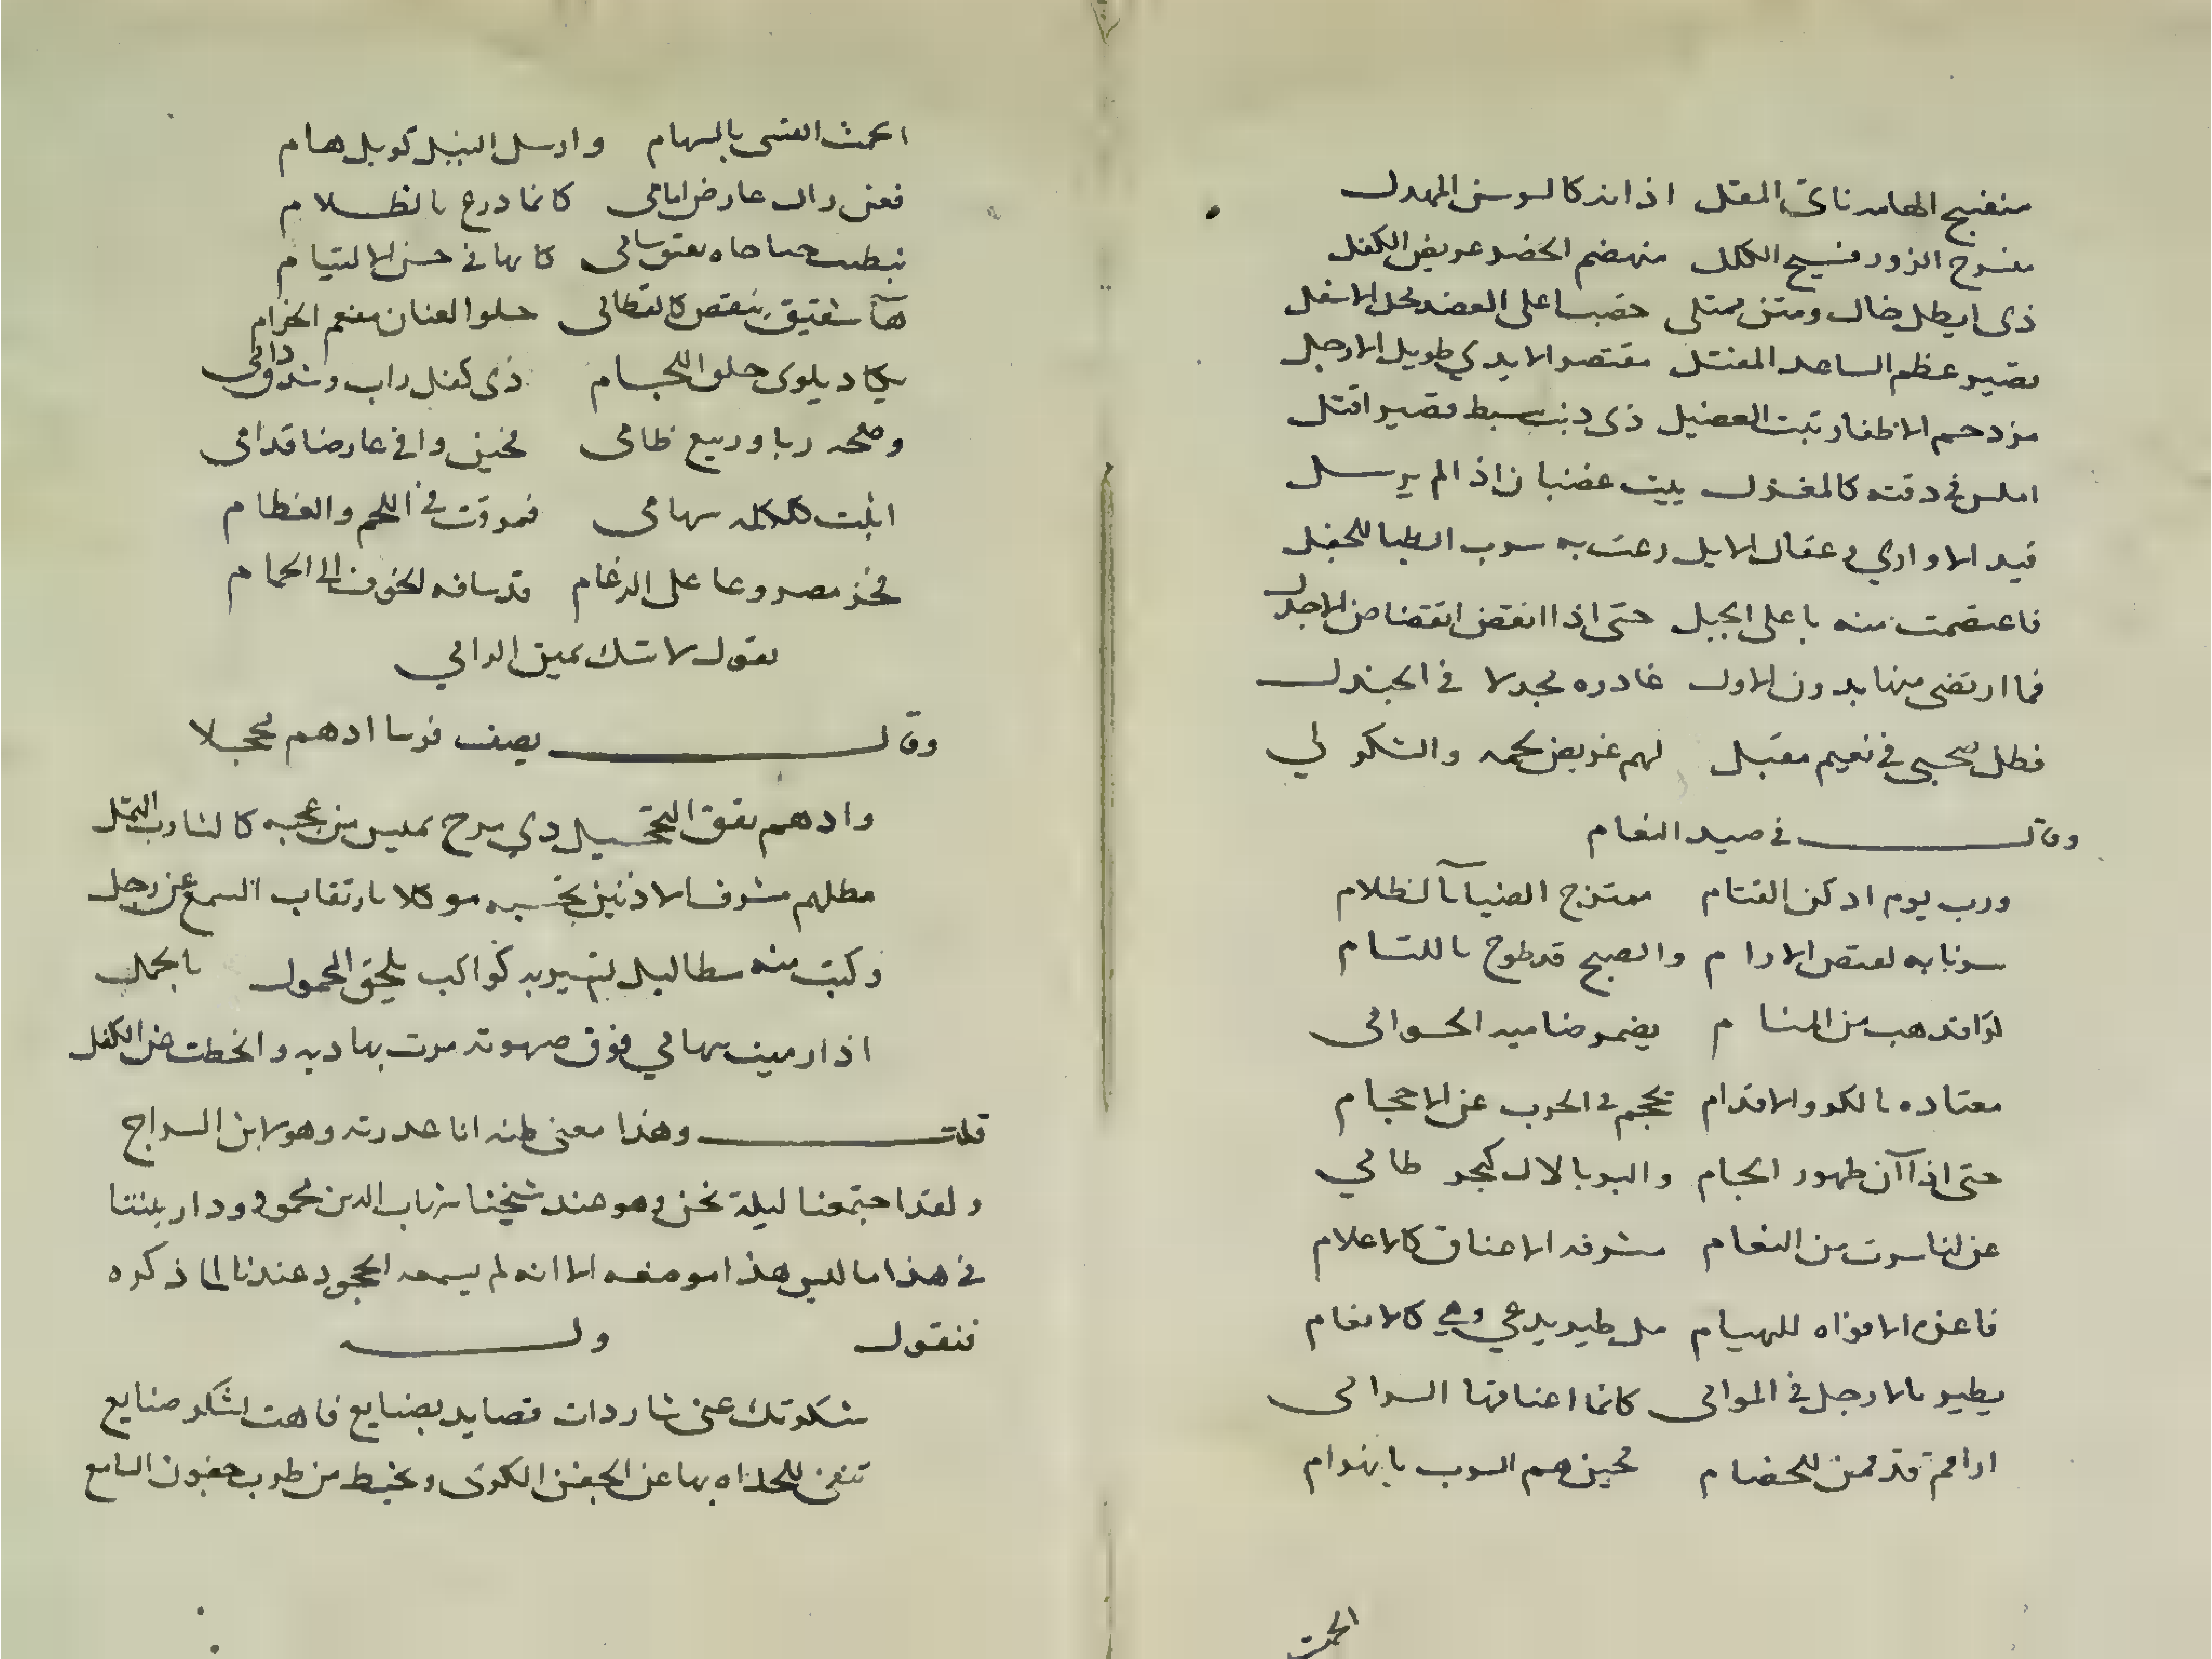 منفيج الهامه ناتئ المقل اذانه كالسوسن المهدل
مفرج الزور فسيح الكلكل منهضم الخصر عريض الكفل
ذى ايطل خال ومتن ممتلى اعلى العضد الاسفل
قصير عظم الساعد المفتل مقتصر الايدي طويل الارجل
مزدحم الاظفار ثبت العضل ذى ذنب سبط قصير افتل
املس فى دقته كالمغزل يبيت غضبان اذا لم يرسل
قيد الاواري وعقال الايل رعت به سرب الظبا الجفل
فاعتصمت منه باعلى الجبل حتى اذا انقض انقضاض الاجدل
فما ارتضى منها بدون الاول غادره مجدلا فى الجندل
فظل صحبى فى نعيم مقبل لهم غريض لحمه والشكر لي
وقال فى صيد النعام
ورب يوم ادكن القتام ممتزج الضيآ بالظلام
سرنا به لقنص الارام والصبح قد طوح باللثام
يضمر ضامر الحوامى
معتاده بالكر والاقدام تحجم فى الحرب عن الاحجام
حتى اذا آن ظهور الجام والبر بالال كبحر طامي
عن لنا سرب من النعام مشرفه الاعناق كالاعلام
فاغره الافواه للهيام طير يدعى وهي كالانعام
يطير بالارجل فى الموامى كانما اعناقها السوامى
اراقم قد قمن للخصام فحين هم السرب بانهزام
الحمت
الحمت القسى بالسهام وارسل النبل كوبل هام
فعن رال عارض امامى كانما درع بالظلام
كانها فى حسن الالتيام
شقيق ينقض كالقطامى حلو العنان مفعم الحزام
يكاد يلوى حلق اللجام ذى كفل راب وشدق دامى
وصفحه ريا ورسغ ظامى فحين وافى عارضا قدامى
اثبت كلكله سهامى فمرقت فى اللحم والعظام
فخر مصروعا على الرغام قد ساقه الخوف الى الحمام
يقول لا شك يمين الرامي
وقال يصف فرسا ادهم محجلا
وادهم يقق التحجيل ذي مرح يميس من عجبه كالشارب الثمل
مطهم مشرف الاذنين تحسبه موكلا بارتقاب السمع عن زحل
ركبت منه مطا ليل تسير به كواكب يلحق المحمول بالحمل
اذا رميت سهامي فوق صهوته مرت بهاديه وانحطت عن الكفل
قلت وهذا معنى ظنه انا عذرته وهو لابن السراج
ولقد اجتمعنا ليلة نحن وهو عند شيخنا شهاب الدين محمود ودار بيننا
فى هذا ما ليس هذا موضعه الا انه لم يسمعه الجحود عندنا لما ذكره
فنقول وله
شكرتك عنى شاردات قصايد بصنايع فاهت لشكر صنايع
تنفى للحداه بها عن الجفن الكرى ويخيط من طرب جفون السامع